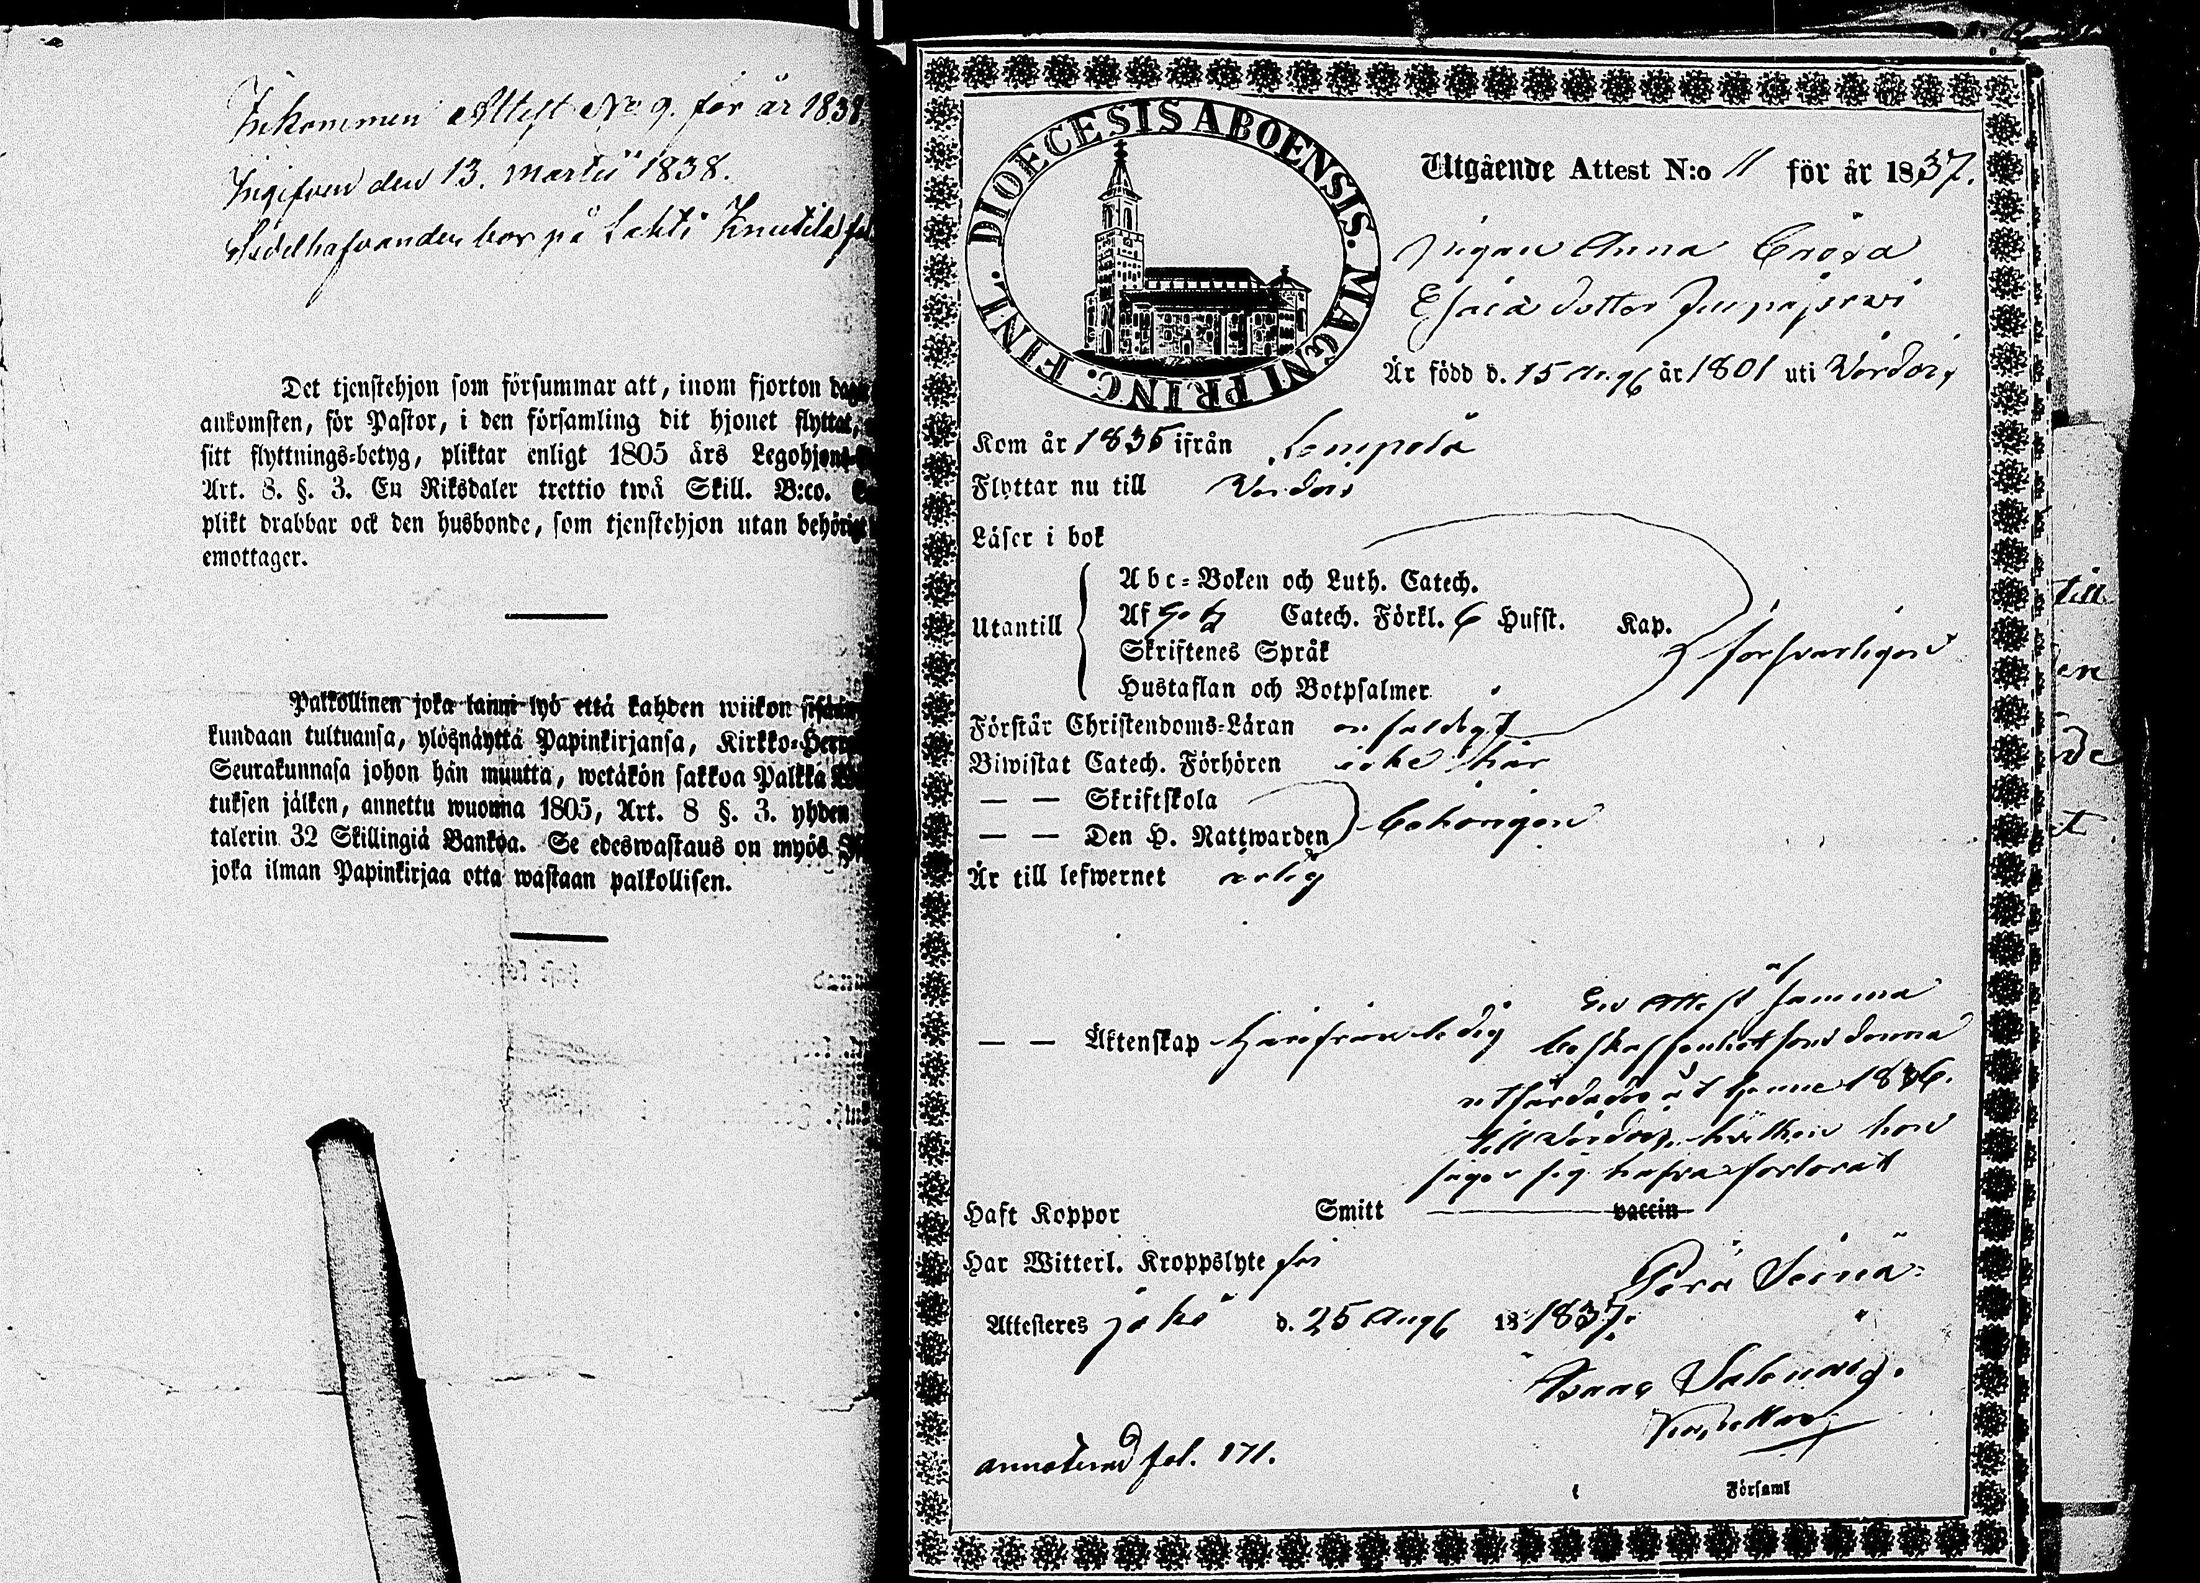 Inkommen Attest No 9. för år 1838
Ingifven den 13. Martii 1838.
bor på Lahti Knutila
Det tjenstehjon som försummar att, inom fjorton daga
ankomsten, för Pastor, i den församling dit hjonet flyttat,
sitt flyttnings-betyg, pliktar enligt 1805 års Legohjons
Art. 8. §. 3. En Riksdaler trettio twå Skill. B:co.
plikt drabbar ock den husbonde, som tjenstehjon utan behörigt
emottager.
Palkollinen joka laimi-lyö että kahden wiikon sisään
kundaan tultuansa, ylösnäyttä Papinkirjansa, Kirkko-Herra
Seurakunnasa johon hän muutta, wetäkön sakkoa Palkka
tuksen jälken, annettu wuonna 1805, Art. 8 §. 3. yhden
talerin 32 Skillingiä Bankoa. Se edeswastaus on myös
joka ilman Papinkirjaa otta wastaan palkollisen.
DIOECESIS ABOENSIS. MAGNI PRINC. FINL.
Utgående Attest N:o 11 för år 1837.
Pigan Anna Greta
Esaias dotter
Är född d. 15 Aug är 1801 uti Vördois
Kom år 1835 ifrån Lempälä
Flyttar nu till Vördois
Läser i bok
Utantill
Abc-Boken och Luth. Catech.
Af Catech. Förkl. 6 Hufst. Kap.
Skriftenes Språk
Hustaflan och Botpsalmer
försvarligen
Förstår Christendoms-Läran enfaldigt
Biwistat Catech. Förhören icke här
— — Skriftskola
— — Den H. Nattwarden behörigen
Är till lefwernet ärlig
— — Äktenskap Härifrån ledig
En Attest af samma
beskaffenhet som denna
utfärdades åt henne 1836.
till Vördois, hvilken hon
säger sig hafva förlorat
Haft Koppor Smitt vaccin
Har Witterl. Kroppslyte
Attesteres d. 25 Aug 18 1837.
Isaac
annoterad fol. 171.
Församl